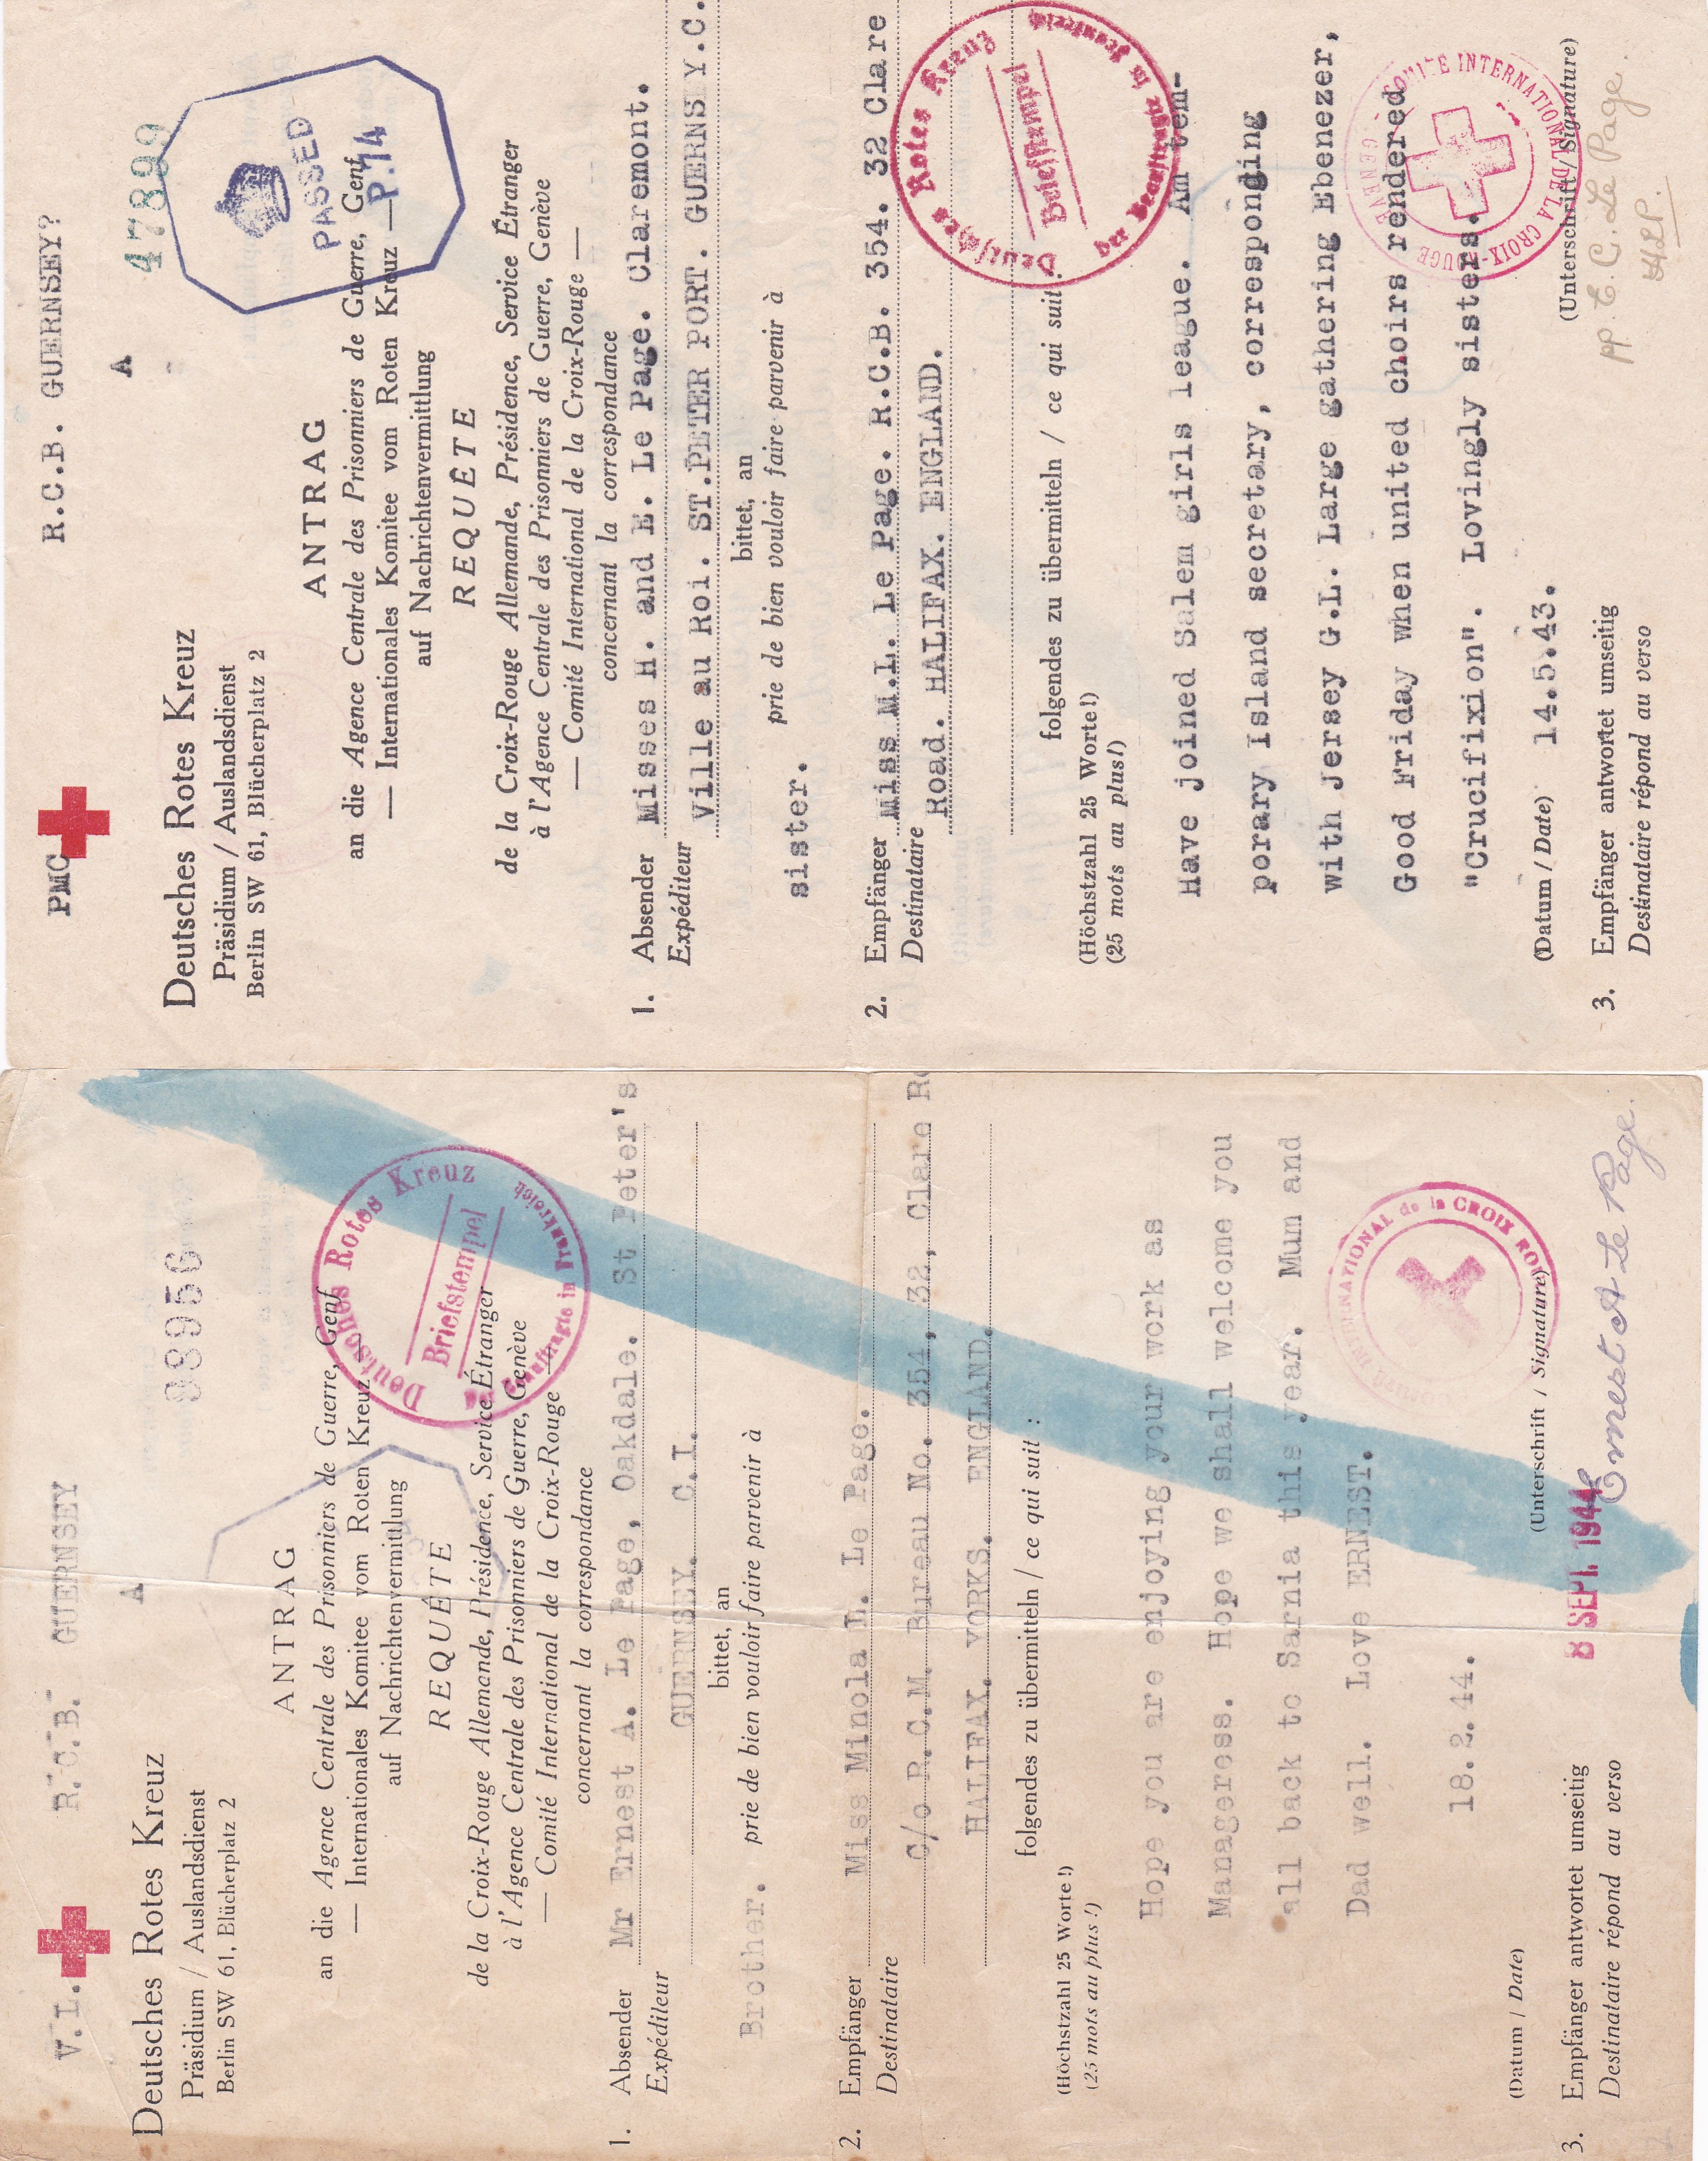 V.L. R.C.B. GUERNSEY
A
98956
Deutsches Rotes Kreuz
Präsidium / Auslandsdienst
Berlin SW 61, Blücherplatz 2
ANTRAG
an die Agence Centrale des Prisonniers de Guerre, Genf
— Internationales Komitee vom Roten Kreuz —
auf Nachrichtenvermittlung
REQUÊTE
de la Croix-Rouge Allemande, Présidence, Service Étranger
à l'Agence Centrale des Prisonniers de Guerre, Genève
— Comité International de la Croix-Rouge —
concernant la correspondance
Deutsches Rotes Kreuz
Briefstempel
in Frankreich
1. Absender Mr Ernest A. Le Page, Oakdale. St Peter's
Expéditeur
GUERNSEY. C.I.
bittet, an
Brother. prie de bien vouloir faire parvenir à
2. Empfänger Miss Minola L. Le Page.
Destinataire C/o R.C.M. Bureau No. 354, 32, Clare
HALIFAX. YORKS. ENGLAND.
folgendes zu übermitteln / ce qui suit :
(Höchstzahl 25 Worte!)
(25 mots au plus!)
Hope you are enjoying your work as
Manageress. Hope we shall welcome you
all back to Sarnia this year. Mum and
Dad well. Love ERNEST.
18.2.44.
INTERNATIONAL de la CROIX ROUGE
(Datum / Date) (Unterschrift / Signature)
8 SEPT. 1944
Ernest A Le Page.
3. Empfänger antwortet umseitig
Destinataire répond au verso
PMC R.C.B. GUERNSEY?
A
47899
PASSED
P.14
Deutsches Rotes Kreuz
Präsidium / Auslandsdienst
Berlin SW 61, Blücherplatz 2
ANTRAG
an die Agence Centrale des Prisonniers de Guerre, Genf
— Internationales Komitee vom Roten Kreuz —
auf Nachrichtenvermittlung
REQUÊTE
de la Croix-Rouge Allemande, Présidence, Service Étranger
à l'Agence Centrale des Prisonniers de Guerre, Genève
— Comité International de la Croix-Rouge —
concernant la correspondance
1. Absender Misses H. and E. Le Page. Claremont.
Expéditeur Ville au Roi. ST.PETER PORT. GUERNSEY.C.
bittet, an
prie de bien vouloir faire parvenir à
sister.
2. Empfänger Miss M.L. Le Page. R.C.B. 354. 32 Clare
Destinataire Road. HALIFAX. ENGLAND.
Deutsches Rotes Kreuz
Briefstempel
der Beauftragte in Frankreich
folgendes zu übermitteln / ce qui suit :
(Höchstzahl 25 Worte!)
(25 mots au plus!)
Have joined Salem girls league. Am tem-
porary Island secretary, corresponding
with Jersey G.L. Large gathering Ebenezer,
Good Friday when united choirs rendered
"Crucifixion". Lovingly sisters.
COMITE INTERNATIONAL DE LA CROIX-ROUGE - GENEVE
(Datum / Date) 14.5.43. (Unterschrift / Signature)
pp. E. C. Le Page.
HLP.
3. Empfänger antwortet umseitig
Destinataire répond au verso